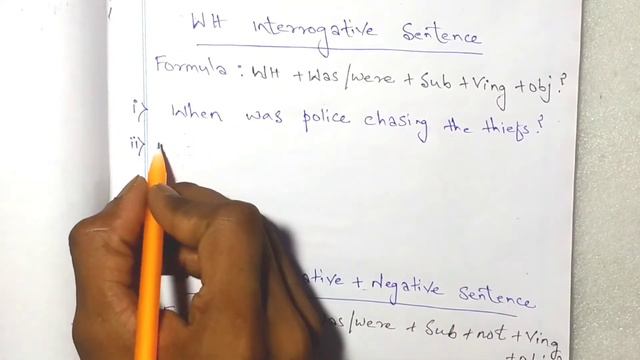 WH interrogative Sentence
Formula : WH + Was/were + Sub + Ving + obj ?
i) When was police chasing the thiefs ?
ii)
ative + Negative Sentence
as/were + Sub + not + Ving